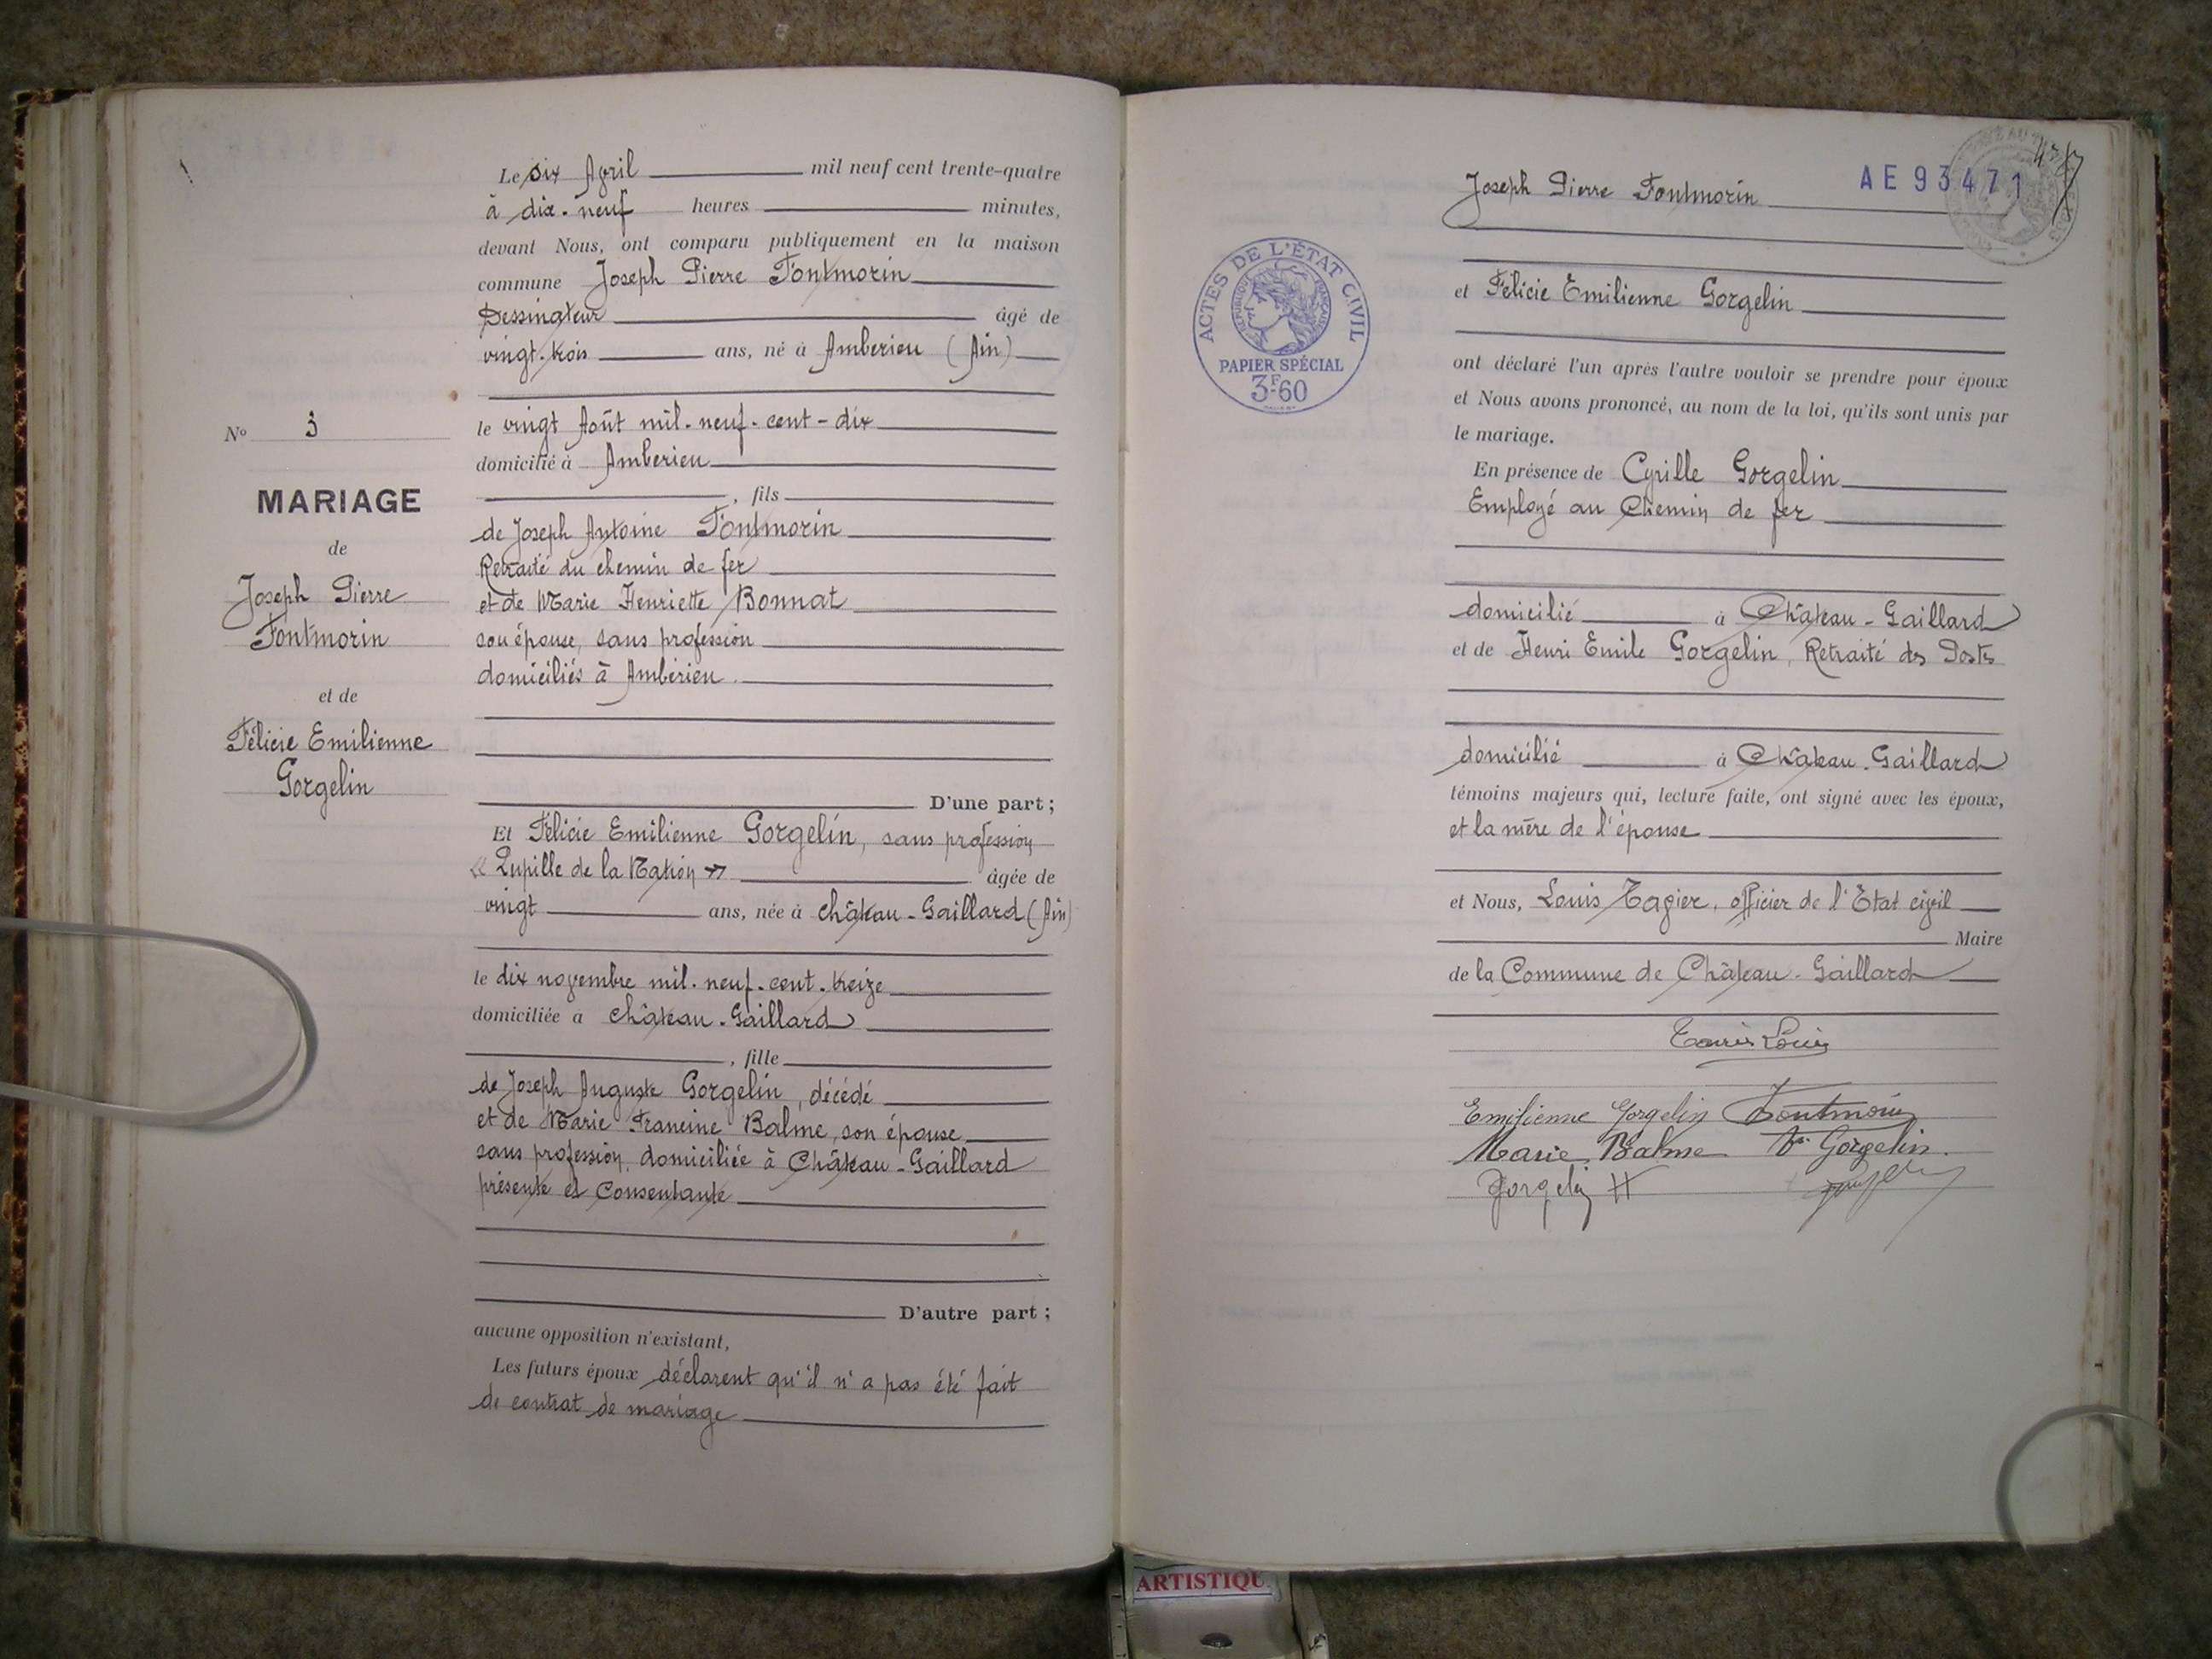 Le six Avril mil neuf cent trente-quatre
à dix-neuf heures minutes,
devant Nous, ont comparu publiquement en la maison
commune Joseph Pierre Fontmorin
Dessinateur âgé de
vingt-trois ans, né à Amberieu (Ain)
le vingt Août mil-neuf-cent-dix
domicilié à Amberieu
, fils
de Joseph Antoine Fontmorin
Retraité du chemin de fer
et de Marie Henriette Bonnat
son épouse, sans profession
domiciliés à Ambérieu.
D'une part ;
Et Félicie Emilienne Gorgelin, sans profession
« Pupille de la Nation » âgée de
vingt ans, née à Château-Gaillard (Ain)
le dix novembre mil-neuf-cent-treize
domiciliée à Château-Gaillard
, fille
de Joseph Auguste Gorgelin, décédé
et de Marie Francine Balme, son épouse
sans profession, domiciliée à Château-Gaillard
présente et consentante
D'autre part ;
aucune opposition n'existant,
Les futurs époux déclarent qu'il n'a pas été fait
de contrat de mariage
N° 3
MARIAGE
de
Joseph Pierre
Fontmorin
et de
Félicie Emilienne
Gorgelin
AE93471
ACTES DE L'ÉTAT CIVIL
RÉPUBLIQUE FRANÇAISE
PAPIER SPÉCIAL
3F60
Joseph Pierre Fontmorin
et Félicie Emilienne Gorgelin
ont déclaré l'un après l'autre vouloir se prendre pour époux
et Nous avons prononcé, au nom de la loi, qu'ils sont unis par
le mariage.
En présence de Cyrille Gorgelin
Employé au Chemin de fer
domicilié à Château-Gaillard
et de Henri Emile Gorgelin, Retraité des Postes
domicilié à Château-Gaillard
témoins majeurs qui, lecture faite, ont signé avec les époux,
et la mère de l'épouse
et Nous, Louis officier de l'Etat civil
Maire
de la Commune de Château-Gaillard
Louis
Emilienne Gorgelin Fontmorin
Marie Balme Vve Gorgelin.
Gorgelin H
ARTISTIQU